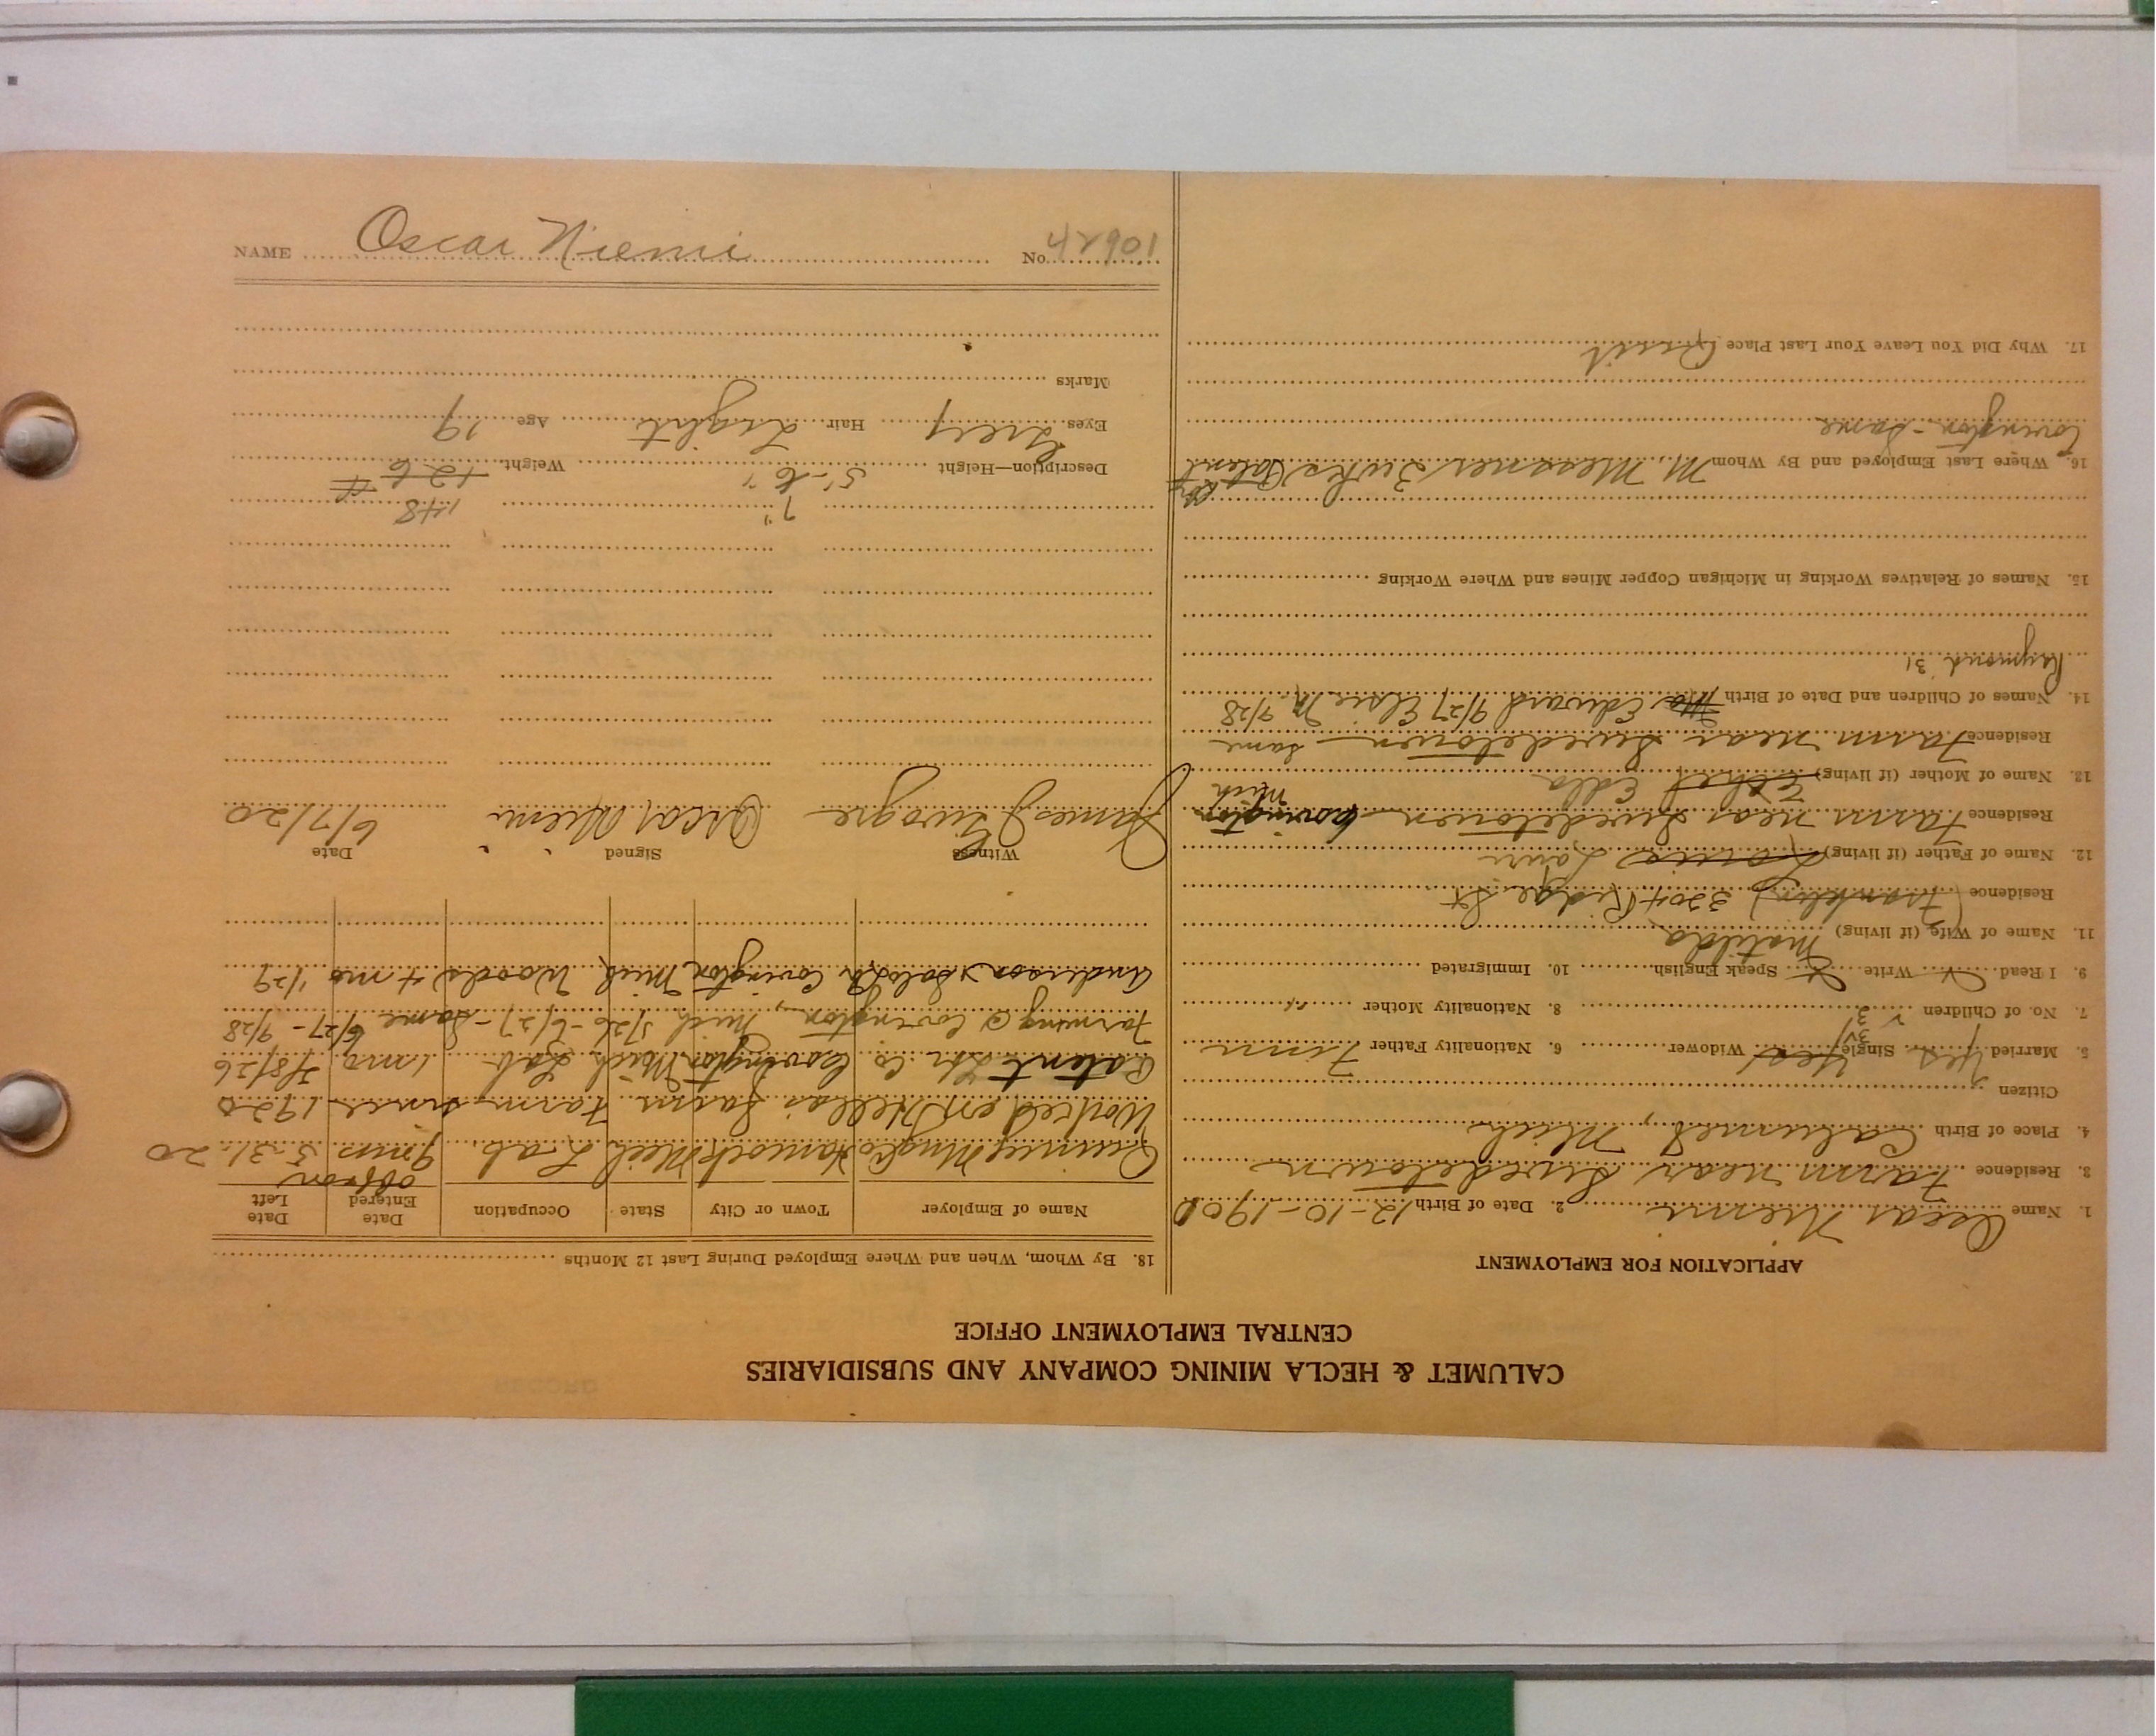 CALUMET & HECLA MINING COMPANY AND SUBSIDIARIES
CENTRAL EMPLOYMENT OFFICE
APPLICATION FOR EMPLOYMENT
1. Name Oscar Niemi 2. Date of Birth 12-10-1900
3. Residence Farm near Swedetown
4. Place of Birth Calumet, Mich
Citizen
5. Married Yes Single Yes Widower 6. Nationality Father Finn
7. No. of Children 2 3 8. Nationality Mother "
9. I Read Write Speak English 10. Immigrated
11. Name of Wife (if living) Matilda
Residence (Franklin) 3204 Ridge St
12. Name of Father (if living) Louis Lauri
Residence Farm near Swedetown Covington Mich
13. Name of Mother (if living) Ethel Edla
Residence Farm near Swedetown - same
14. Names of Children and Date of Birth Edward 9/27 Elsie M. 9/28
Raymond 31
15. Names of Relatives Working in Michigan Copper Mines and Where Working
16. Where Last Employed and By Whom M. Messner
Covington - Same
17. Why Did You Leave Your Last Place Quit
18. By Whom, When and Where Employed During Last 12 Months
Name of Employer Town or City State Occupation Date Entered Date Left
off & on
Quincy Mng Co Hancock Mich Lab. 9 mos 5-31-20
Worked on Farm Farm since 1920
Patent Lbr. Co. Covington Mich Lab 1 mo
Farming @ Covington, Mich 5/26-6/27 - Same 6/27 - 9/28
Anderson & Salo Covington Mich Woods 4 mo 1/29
Witness Signed Date
James J Oscar Niemi 6/7/20
7" 148
Description—Height 5'-6" Weight 126 #
Eyes Grey Hair Light Age 19
Marks
NAME Oscar Niemi No. 42901